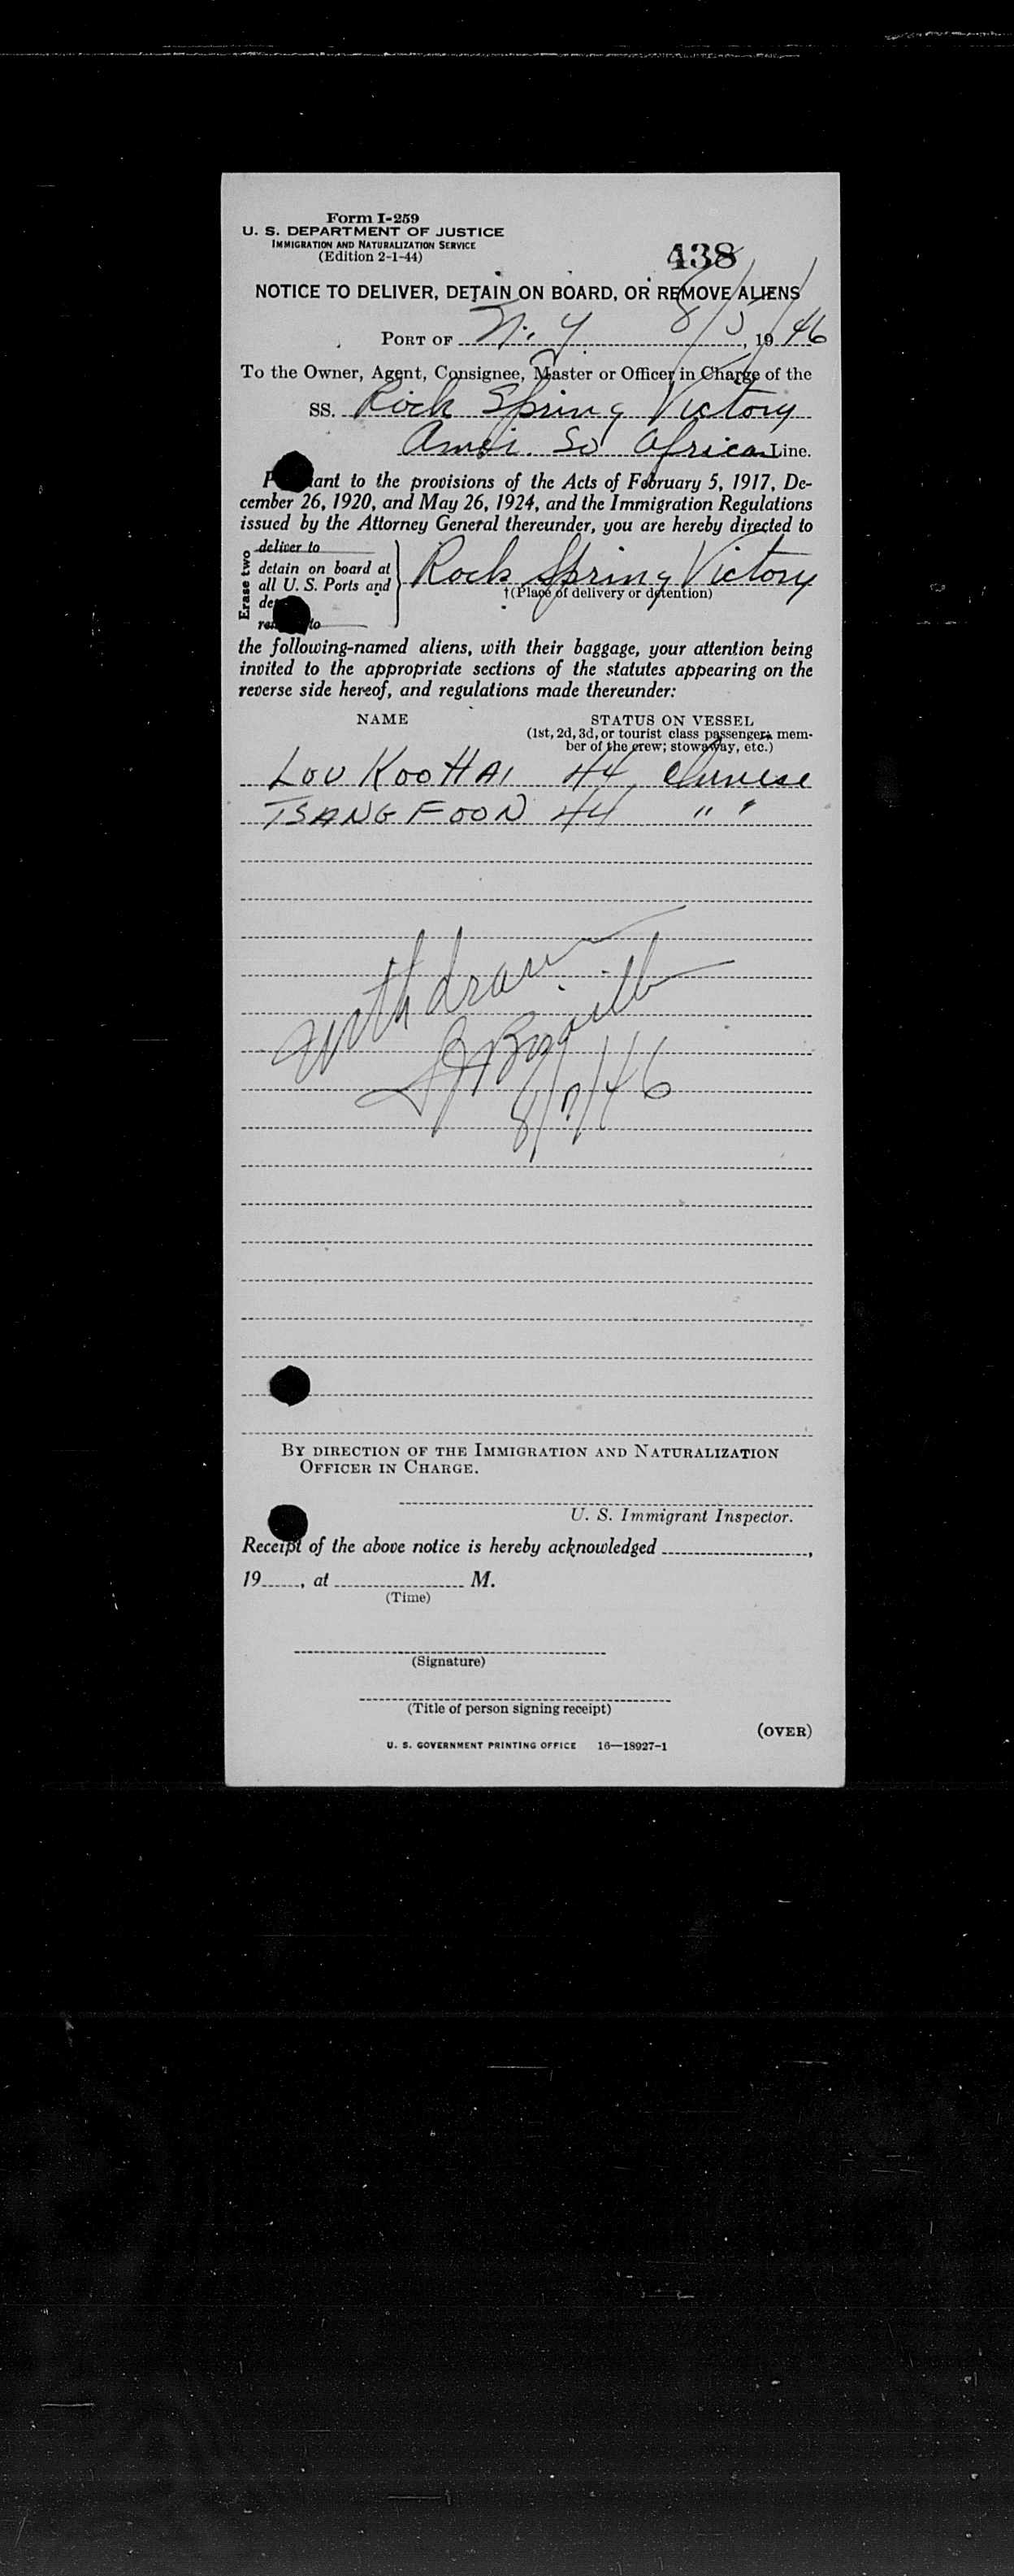 Form I-259
U. S. DEPARTMENT OF JUSTICE
IMMIGRATION AND NATURALIZATION SERVICE
(Edition 2-1-44)
438
NOTICE TO DELIVER, DETAIN ON BOARD, OR REMOVE ALIENS
PORT OF N. Y. 8/5/, 1946
To the Owner, Agent, Consignee, Master or Officer in Charge of the
SS. Rock Spring Victory
Amer. So African Line.
to the provisions of the Acts of February 5, 1917, De-
cember 26, 1920, and May 26, 1924, and the Immigration Regulations
issued by the Attorney General thereunder, you are hereby directed to
Erase two
deliver to
detain on board at
all U. S. Ports and
to
Rock Spring Victory
†(Place of delivery or detention)
the following-named aliens, with their baggage, your attention being
invited to the appropriate sections of the statutes appearing on the
reverse side hereof, and regulations made thereunder:
NAME STATUS ON VESSEL
(1st, 2d, 3d, or tourist class passenger, mem-
ber of the crew; stowaway, etc.)
LOU KOO HAI 44 Chinese
TSANG FOON 44 " "
withdrawn
8/7/46
BY DIRECTION OF THE IMMIGRATION AND NATURALIZATION
OFFICER IN CHARGE.
U. S. Immigrant Inspector.
Receipt of the above notice is hereby acknowledged ,
19 , at M.
(Time)
(Signature)
(Title of person signing receipt)
(OVER)
U. S. GOVERNMENT PRINTING OFFICE 16—18927-1